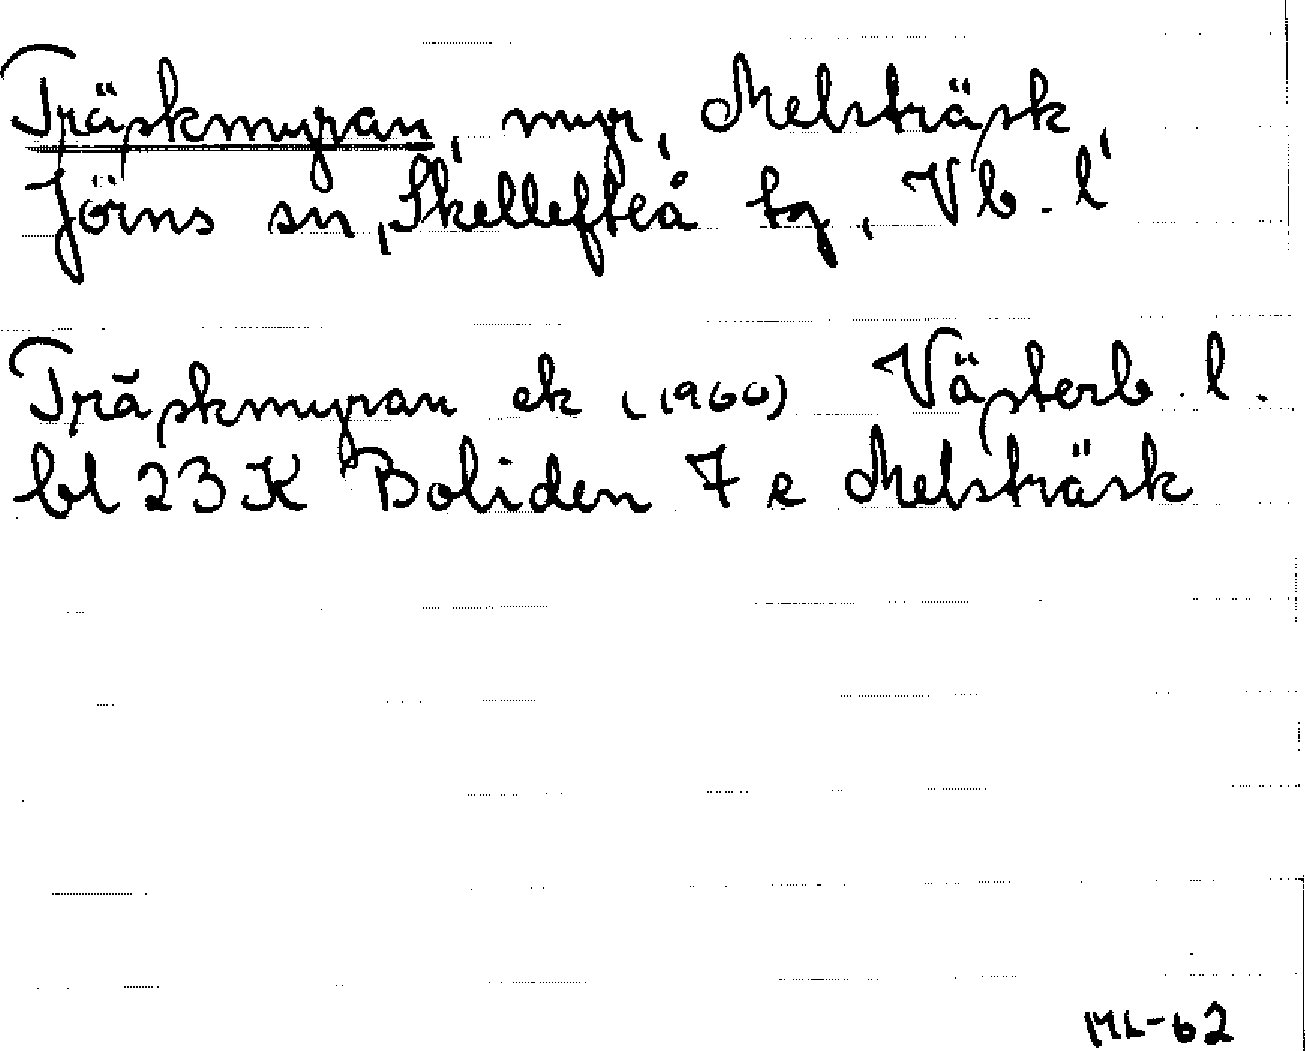 Träskmyran, myr, Melsträsk,
Jörns sn, Skellefteå tg, Vb. l
Träskmyran ek (1960) Västerb. l.
bl 23 K Boliden 7 e Melsträsk
ML-62